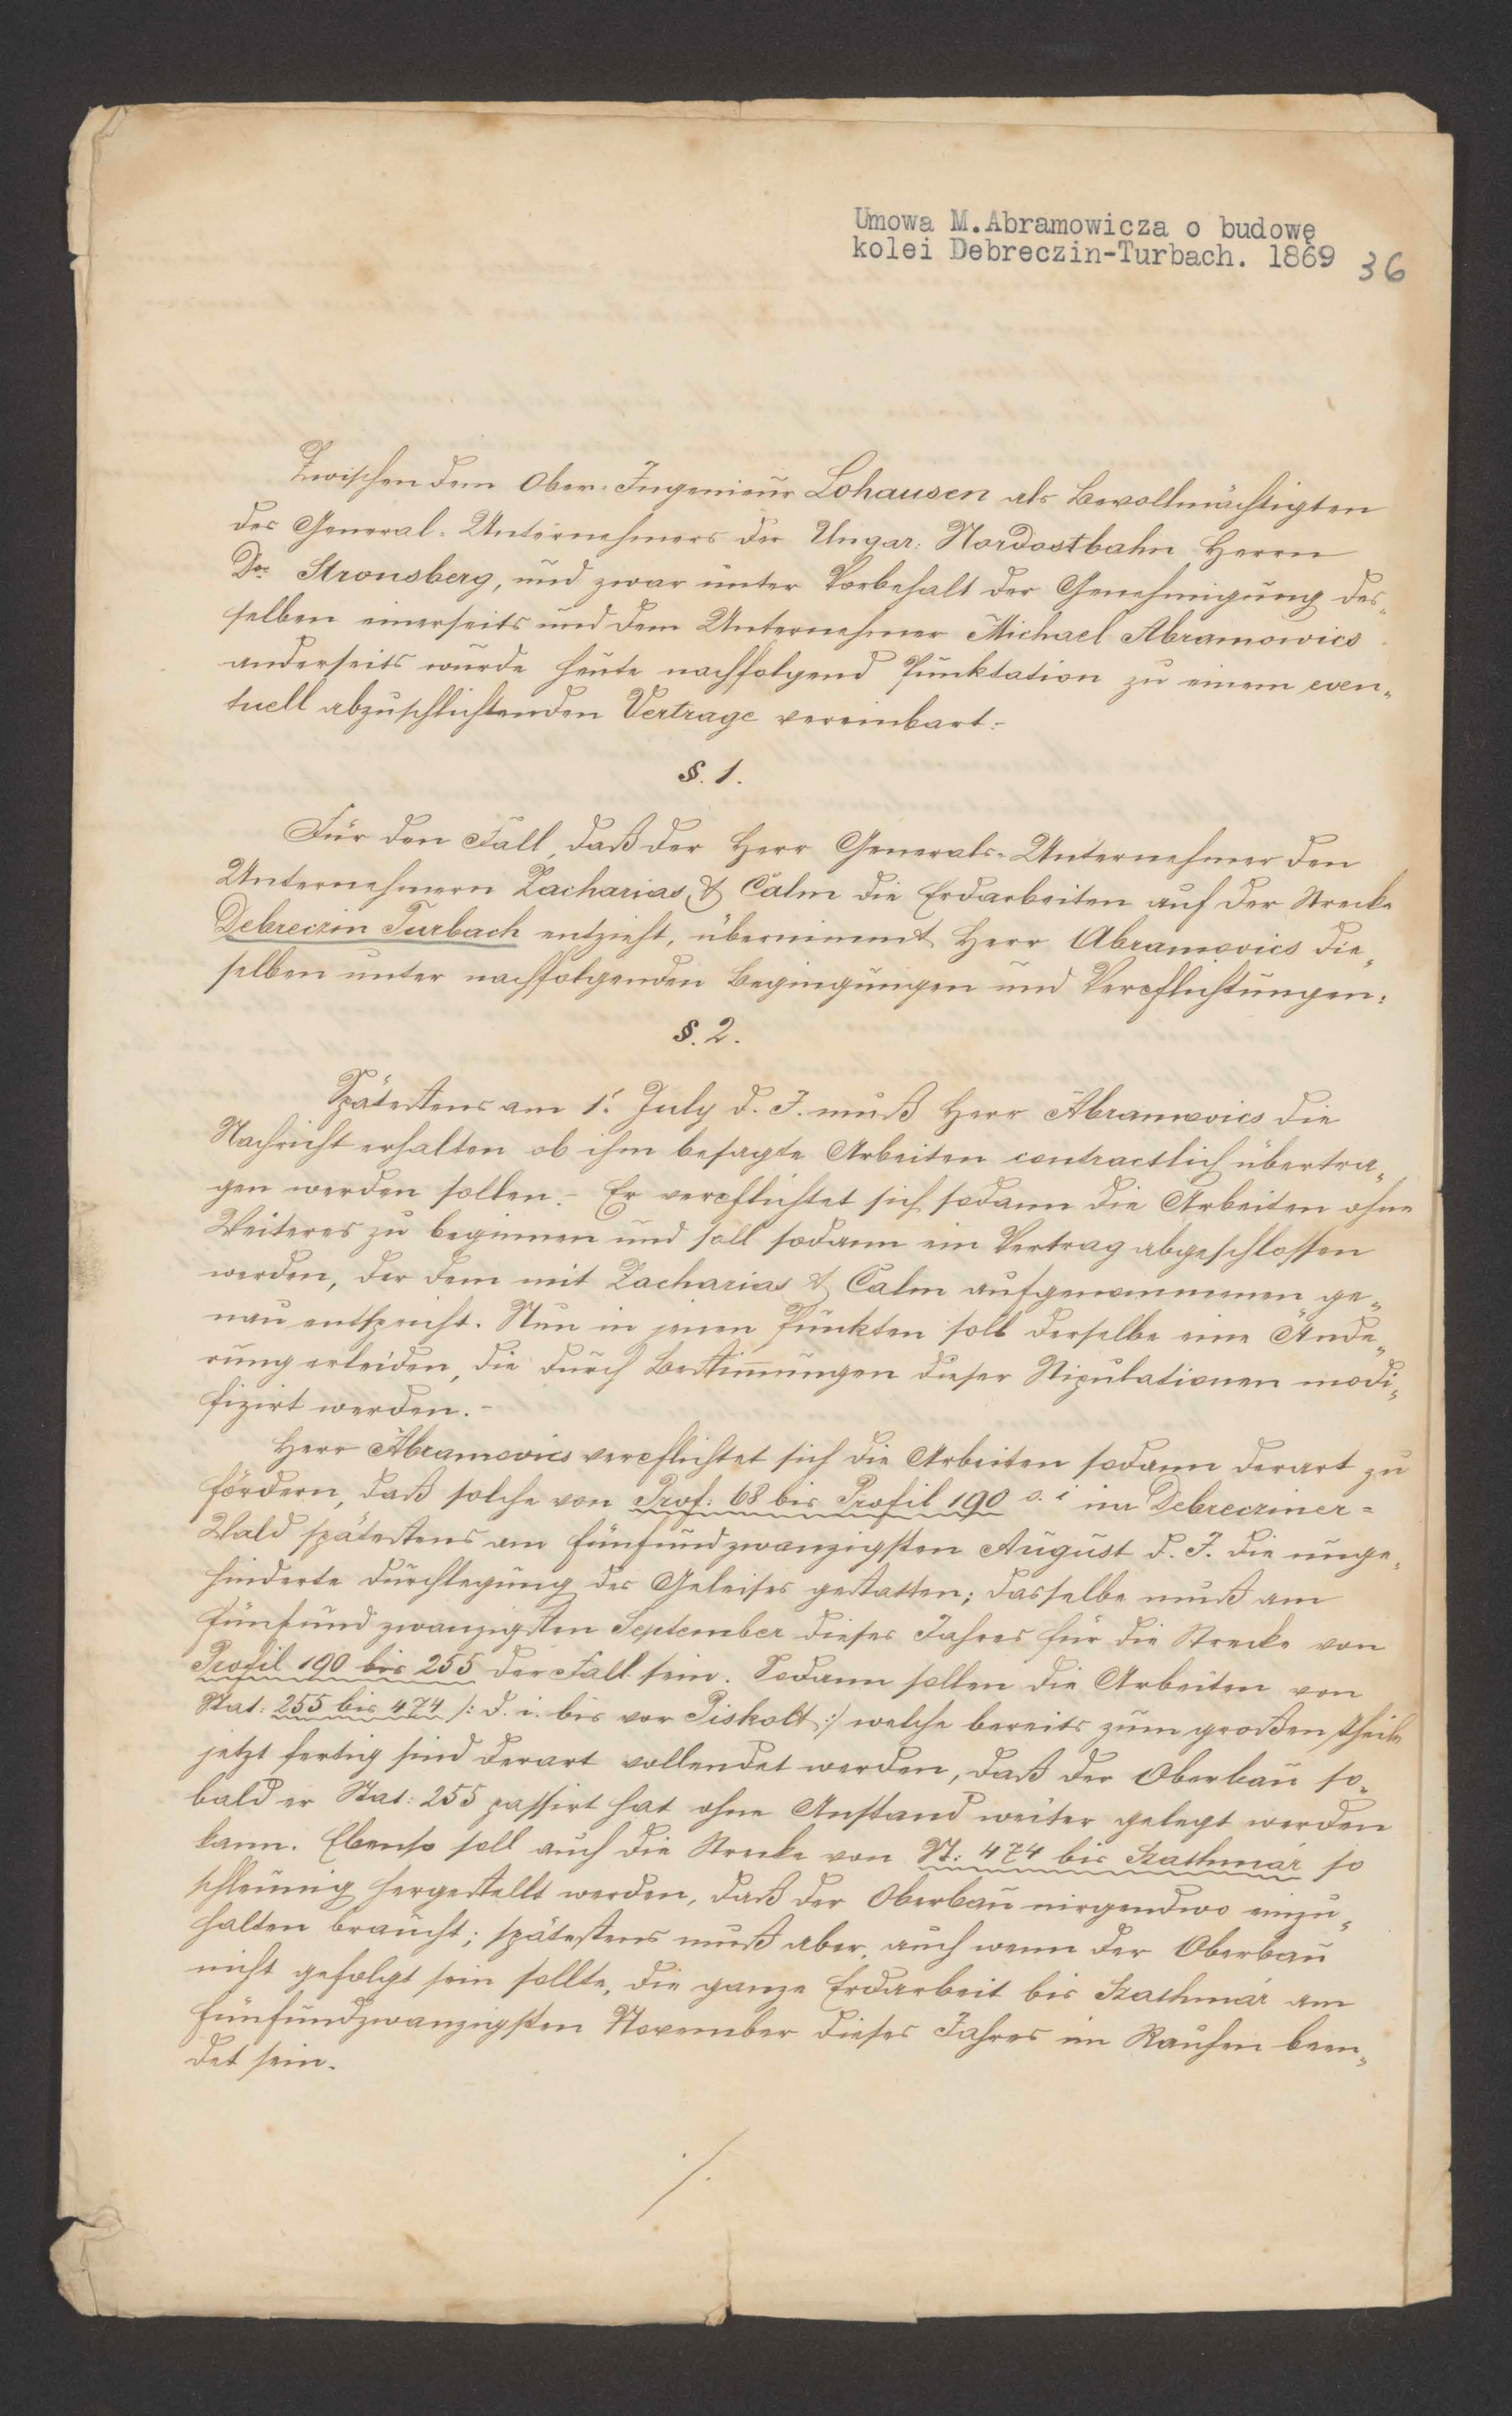 Umowa M.Abramowicza o budowę
kolei Debreczin-Turbach. 1869
36
Zwischen dem Ober-Ingenieur Lohausen als Bevollmächtigten
des General-Unternehmers der Ungar: Nordostbahn Herrn
Dor Strousberg, und zwar unter Vorbehalt der Genehmigung des-
selben einerseits und dem Unternehmer Michael Abramowics
anderseits wurde heute nachfolgend Punktation zu einem even-
tuell abzuschlichtenden Vertrage vereinbart:-
§. 1.
Für den Fall, daß der Herr Generals-Unternehmer den
Unternehmern Zacharias & Calm die Erdarbeiten auf der Strecke
Debreczin Turbach entzieht, übernimmt Herr Abramovics die-
selben unter nachfolgenden Begingungen und Verpflichtungen:
§. 2.
Spätestens am 1t July d. J. muß Herr Abramovics die
Nachricht erhalten ob ihm besagte Arbeiten contractlich übertra-
gen werden sollen.- Er verpflichtet sich sodann die Arbeiten ohne
Weiteres zu beginnen und soll sodann ein Vertrag abgeschlossen
werden, der dem mit Zacharias & Calm aufgenommenen ge-
nau entspricht. Nur in jenen Punkten soll derselbe eine Ände-
rung erleiden, die durch Bestim̄ungen dieser Stipulationen modi-
fizirt werden.-
Herr Abramovics verpflichtet sich die Arbeiten sodann derart zu
fördern, daß solche von Prof: 68 bis Profil 190 d. i im Debrecziner-
Wald spätestens am fünfundzwanzigsten August d. J. die unge-
hinderte Durchlegung des Geleises gestatten; dasselbe muß am
fünfundzwanzigsten September dieses Jahres für die Strecke von
Profil 190 bis 255 der Fall sein. Sodann sollen die Arbeiten von
Stat: 255 bis 474 /: d. i. bis vor Piskolt :/ welche bereits zum großen Theile
jetzt fertig sind derart vollendet werden, daß der Oberbau so-
bald er Stat: 255 passirt hat ohne Anstand weiter gelegt werden
kann. Ebenso soll auch die Strecke von St: 474 bis Szathmár so
schleunig hergestellt werden, daß der Oberbau nirgendwo einzu-
halten braucht; spätestens muß aber, auch wenn der Oberbau
nicht gefolgt sein sollte, die ganze Erdarbeit bis Szathmár am
fünfundzwanzigsten November dieses Jahres im Rauhen been-
det sein.
./.